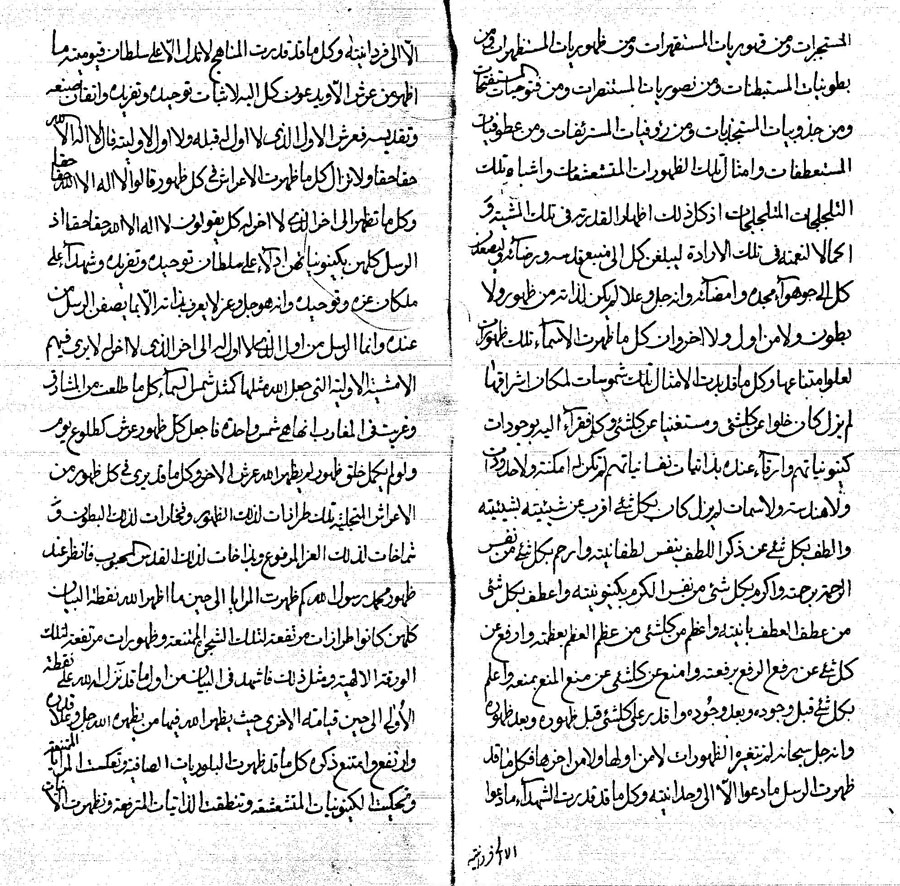 المتجبرات ومن قهوريات المستقهرات ومن ظهوريات المستظهرات ومن
بطونيات المستبطنات ومن نصوريات المستنصرات ومن فتوحيات المستفتحات
ومن جذوبيات المستجذبات ومن رؤفيات المسترئفات ومن عطوفيات
المستعطفات وامثال تلك الظهورات المتشعشعات واشباه تلك
التجليات المتلجلجات اذ كل ذلك اظهار القدرة فى تلك المشية و
الارادة ليبلغن كل الى منبع قدسه ورضائه وليصعدن
كل الى جوهر مجده وامضائه وانه جل وعلا لم يكن لذاته من ظهور ولا
بطون ولا من اول ولا اخر وان كل ما ظهرت الاسماء تلك ظهورات
لعلو امتناعها وكل ما قد بدت الامثال تلك شموسات لمكان اشراقها
لم يزل كان خلوا عن كلشئ ومستغنيا عن كلشئ وكل فقراء اليه بوجودات
كينونياتهم وارقاء عنده بذاتيات نفسانياتهم لم تكن له امكنة ولا حدودات
ولا هندسة ولا سمات لم يزل كان بكل شئ اقرب عن شيئيته لشيئيته
والطف بكل شئ عن ذكر اللطف بنفس لطفانيته وارحم بكل شئ من نفس
الرحمة برحمته واكرم بكل شئ من نفس الكرم بكينونيته واعطف بكل شئ
من عطف العطف بانيته واعظم من كلشئ من عظم العظم بعظمته وارفع عن
كل شئ عن رفع الرفع برفعته وامنع عن كلشئ عن منع المنع بمنعه واعلم
بكل شئ قبل وجوده وبعد وجوده واقدر على كلشئ قبل ظهوره وبعد ظهوره
وانه جل سبحانه لم تغيره الظهورات لا من اولها ولا من اخرها فكل ما قد
ظهرت الرسل ما دعوا الا الى وحدانيته وكل ما قد قدرت الشهداء ما دعوا
الا الى فردانيته
الا الى فردانيته وكل ما قد قدرت المناهج لا تدل الا على سلطان قيوميته ما
اظهر من عرش الا ويدعون كل اليه لاثبات توحيده وتفريده واتقان صنعه
وتقديسه فعرش الاول الذى لا اول له قبله ولا اول لاوليته قال لا اله الا الله
حقا حقا ولا تزال كل ما ظهرت الاعراش فى كل ظهور قالوا لا اله الا الله حقا حقا
وكل ما تظهر الى اخر الذى لا اخر له كل يقولون لا اله الا الله حقا حقا اذ
الرسل كلهن بكينونياتهن ادلاء على سلطان توحيده وتفريده وشهداء على
ملكان عزه وتوحيده وانه هو جل وعز لا يعرف بذاته الا بما يصفن الرسل من
عنده وانما الرسل من اول الذى لا اول له الى اخر الذى لا اخر له لا يرى فيهم
الا مشية الاولية التى جعل الله مثلها كمثل شمس السماء كل ما طلعت من المشارق
وغربت فى المغارب انها هى شمس واحدة فاجعل كل ظهور عرش كطلوع يوم
ولو لم يكمل خلق ظهور لم يظهر الله عرش الاخر وكل ما قد يرى فى كل ظهور من
الاعراش المتجلية تلك طرازات لذلك الظهور وفخارات لذلك البطون و
شماخات لذلك العز المرفوع وبذاخات لذلك القدس المحبوب فانظر عند
ظهور محمد رسول الله كم ظهرت المرايا الى حين ما اظهر الله نقطة البيان
كلهن كانوا طرازات مرتفعة لتلك الشجرة الممتنعة وظهورات مرتفعة لتلك
الورقة الالهية ومثل ذلك فاشهد فى البيان من اول ما قد نزل الله على نقطة
الأولى الى حين قيامته الاخرى حيث يظهر الله فيها من يظهره الله جل وعلا قدره
وارتفع وامتنع ذكره كل ما قد ظهرت البلوريات الصافية وتعكست المرايا الممتنعة
وتحيكت الكينونيات المتشعشعة وتنطقت الذاتيات المترفعة وتظهرت